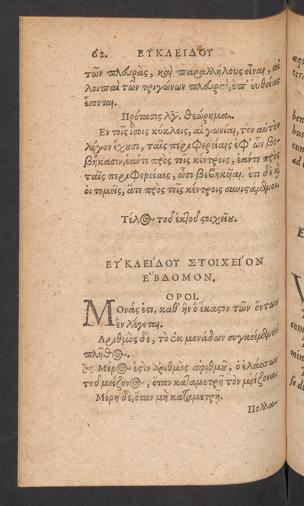 62. ΕΥΚΛΕΙΔΟΥ
τῶν πλευρὰς, καὶ παραλλήλους εἶναι, αἱ
λοιπαὶ τῶν τριγώνων πλευραὶ, ἐπ' εὐθείας
ἔσονται.
Πρότασις λγ. θεώρημα.
Ἐν τοῖς ἴσοις κύκλοις, αἱ γωνίαι, τὸν αὐτὸν
λόγον ἔχουσι, ταῖς περιφερείαις ἐφ' ὧν βε-
βήκασιν, ἐάντε πρὸς τοῖς κέντροις, ἐάντε πρὸς
ταῖς περιφερείαις, ὦσι βεβηκυῖαι. ἔτι δὲ καὶ
οἱ τομεῖς, ἅτε πρὸς τοῖς κέντροις συνιστάμενοι.
Τέλος τοῦ ἕκτου στοιχείου.
ΕΥΚΛΕΙΔΟΥ ΣΤΟΙΧΕΙΟΝ
ΕΒΔΟΜΟΝ.
ΟΡΟΙ.
Μονάς ἐστι, καθ' ἣν ἕκαστον τῶν ὄντων
ἓν λέγεται.
Ἀριθμὸς δὲ, τὸ ἐκ μονάδων συγκείμενον
πλῆθος.
Μέρος ἐστὶν ἀριθμὸς ἀριθμοῦ, ὁ ἐλάσσων
τοῦ μείζονος, ὅταν καταμετρῇ τὸν μείζονα.
Μέρη δὲ, ὅταν μὴ καταμετρῇ.
Πολλα-